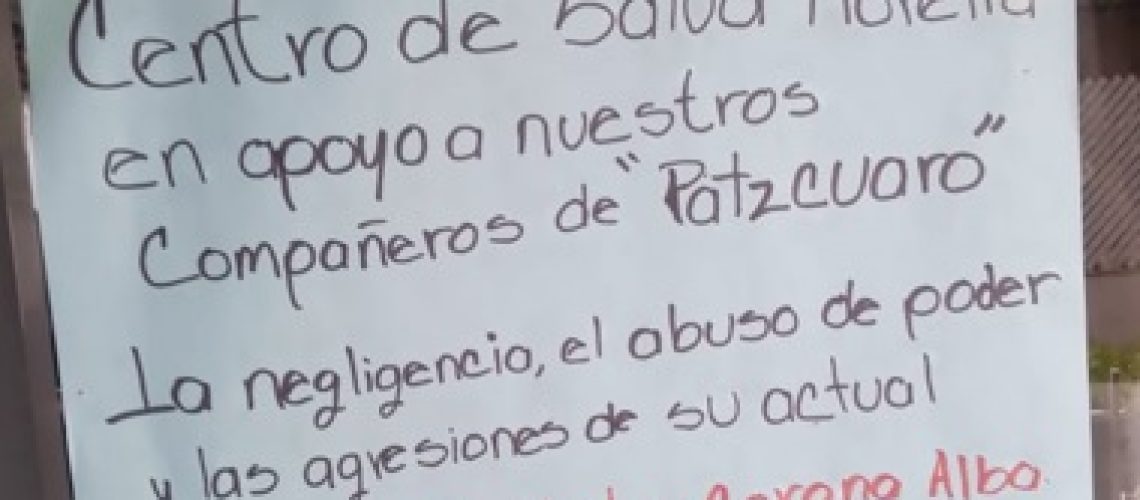 Centro de Salud Morelia
en apoyo a nuestros
Compañeros de "Patzcuaro"
La negligencia, el abuso de poder
y las agresiones de su actual
Albo